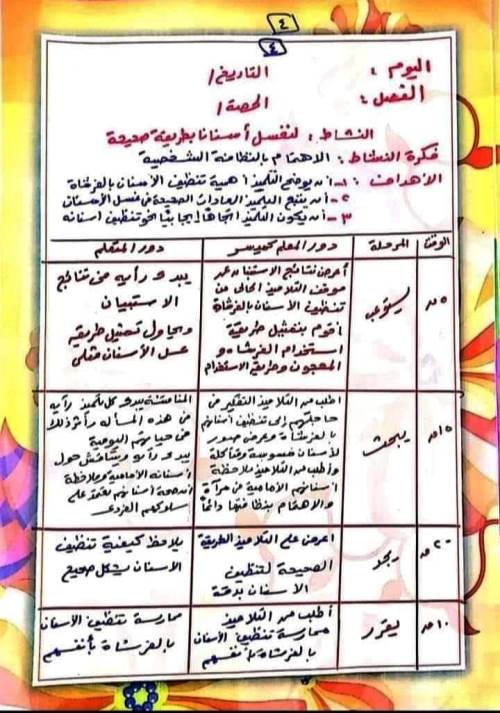 ٤
٤
اليوم :
التاريخ /
الفصل :
الحصة /
النشاط : لنغسل أسناننا بطريقة صحيحة
فكرة النشاط : الاهتمام بالنظافة الشخصية
الأهداف : ١- أن يوضح التلميذ أهمية تنظيف الأسنان بالفرشاة
٢- أن يتبع التلميذ العادات الصحيحة فى غسل الأسنان
٣- أن يكون التلميذ اتجاهًا إيجابيًا نحو تنظيف أسنانه
الوقت
المرحلة
دور المعلم كميسر
دور المتعلم
٥ د
يستوعب
أعرض نتائج الاستبيان عن
موقف التلاميذ الحالى من
تنظيف الأسنان بالفرشاة
أقوم بتمثيل طريقة
استخدام الفرشاة و
المعجون وطريقة الاستخدام
يبدى رأيه فى نتائج
الاستبيان
ويحاول تمثيل طريقة
غسل الأسنان مثلى
١٥ د
يبحث
اطلب من التلاميذ التفكير عن
حاجتهم إلى تنظيف أسنانهم
بالفرشاة وعرض صور
لأسنان مسوسة ومتآكلة
وأطلب من التلاميذ ملاحظة
أسنانهم الأمامية فى مرآة
والاهتمام بنظافتها دائمًا
المناقشة يبدى كل تلميذ رأيه
فى هذه المسألة وأثر ذلك
فى حياتهم اليومية
يبدى رأيه ويتناقش حول
أسنانه الأمامية وملاحظة
أن صحة أسنانهم تعتمد على
سلوكهم الفردى
٢٠ د
يجد
اعرض على التلاميذ الطريقة
الصحيحة لتنظيف
الأسنان بدقة
يلاحظ كيفية تنظيف
الأسنان بشكل صحيح
١٠ د
يقرر
أطلب من التلاميذ
ممارسة تنظيف الأسنان
بالفرشاة بأنفسهم
ممارسة تنظيف الأسنان
بالفرشاة بأنفسهم